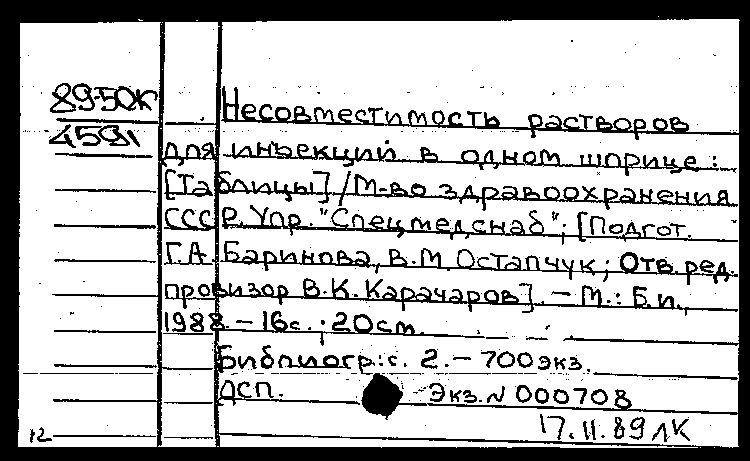 89-50к
4591
Несовместимость растворов
для инъекций в одном шприце:
[Таблицы] / М-во здравоохранения
СССР. Упр. "Спецмедснаб"; [Подгот.
Г.А. Баринова, В.М. Остапчук; Отв. ред.
провизор В.К. Карачаров]. - М.: Б.и.,
1988. - 16с.; 20см.
Библиогр.: с. 2. - 700 экз.
ДСП. Экз. N 000708
17.11.89 ЛК
12